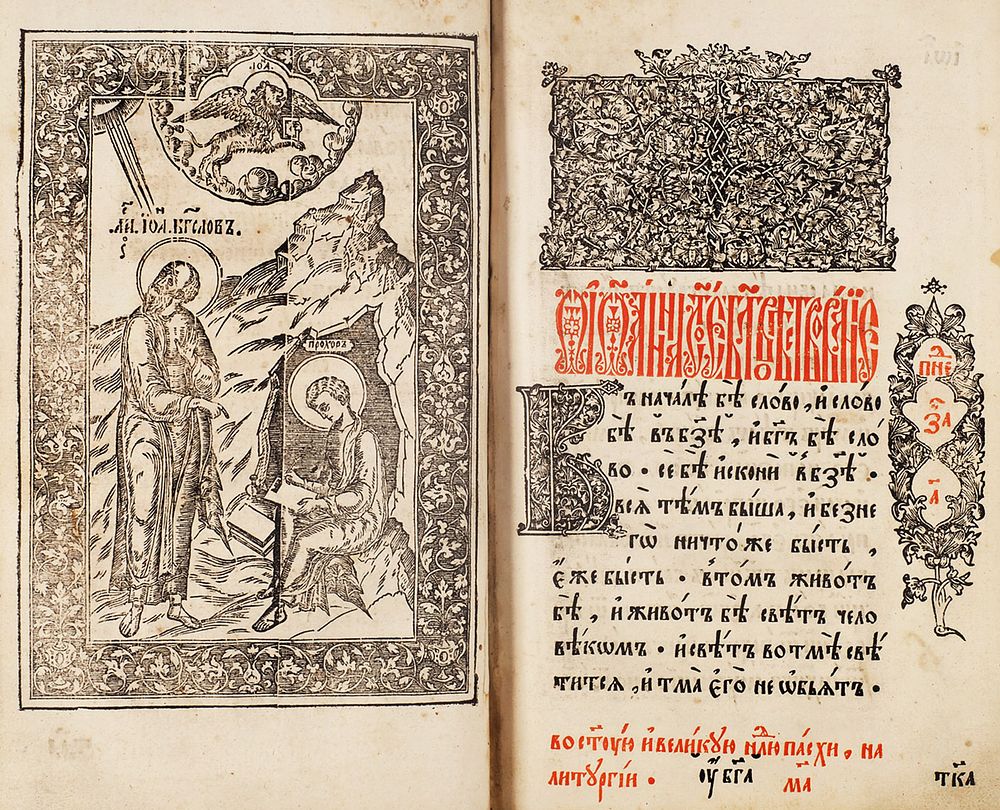 ІОА
АП. ІѠ҃А. БГ҃СЛОВЪ.
ПРОХОРЪ
Въ нача́лѣ бѣ̀ сло́во, и҆ сло́во
бѣ̀ въ бз҃ѣ, и҆ бг҃ъ бѣ̀ сло́
во · се́ бѣ̀ и҆сконѝ в̾ бз҃ѣ ·
всѧ̀ тѣ́мъ бы́ша, и҆ безне
гѡ̀ ничто́же бы́сть,
є҆́же бы́сть · в̾то́мъ живо́тъ
бѣ̀, и҆ живо́тъ бѣ̀ свѣ́тъ чело
вѣ́кѡмъ · и҆ свѣ́тъ во тмѣ̀ свѣ́
титсѧ, и҆ тма̀ є҆го̀ не ѡ҆бьѧ́тъ ·
пнⷣе
за҃
а҃
во ст҃ꙋ́ю и҆ вели́кꙋю нлⷣю па́схи, на
литꙋргі́и · ᲂу҆ бг҃а ма҃ тк҃а